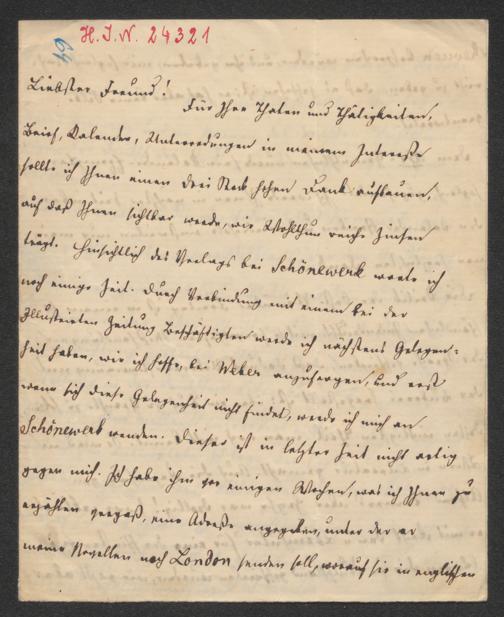 H. I. N. 24321
64
Liebster Freund!
Für Ihre Thaten und Thätigkeiten,
Brief, Kalender, Unterredungen in meinem Interesse
sollte ich Ihnen einen drei Stock hohen Dank aufbauen,
auf daß Ihnen sichtbar werde, wie Wohlthun reiche Zinsen
trägt. Hinsichtlich des Verlags bei Schönewerk warte ich
noch einige Zeit. Durch Verbindung mit einem bei der
Illustrirten Zeitung Beschäftigten werde ich nächstens Gelegen-
heit haben, wie ich hoffe, bei Weber anzufragen, und erst
wenn sich diese Gelegenheit nicht findet, werde ich mich an
Schönewerk wenden. Dieser ist in letzter Zeit nicht artig
gegen mich. Ich habe ihm vor einigen Wochen, was ich Ihnen zu
erzählen vergaß, eine Adresse angegeben, unter der er
meine Novellen nach London senden soll, worauf sie in englischen